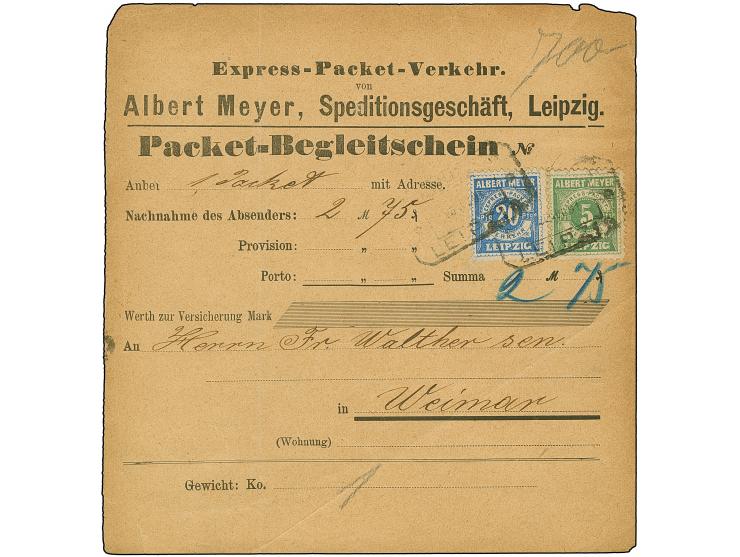 700.-
Express-Packet-Verkehr.
von
Albert Meyer, Speditionsgeschäft, Leipzig.
Packet-Begleitschein №
Anbei 1 Packet mit Adresse.
ALBERT MEYER
20
LEIPZIG
ALBERT MEYER
5
LEIPZIG
LEIPZIG
LEIPZIG
Nachnahme des Absenders: 2 M 75 ₰
Provision: „ „
Porto: „ „ Summa 2 M 75 ₰
Werth zur Versicherung Mark
An Herrn Fr. Walther sen.
in Weimar
(Wohnung)
Gewicht: Ko. 1